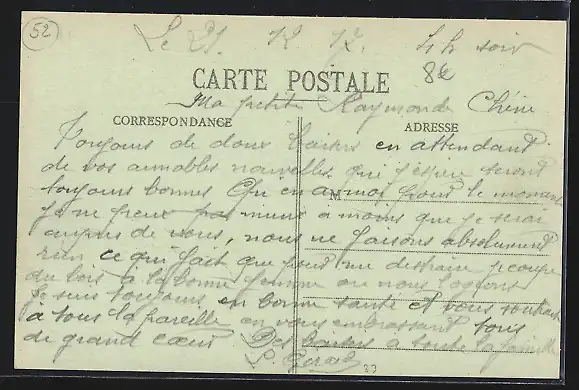 52
Le 21. 12. 17. 4h soir
8€
CARTE POSTALE
Ma petite Raymonde Chérie
CORRESPONDANCE ADRESSE
Toujours de doux baisers en attendant
de vos aimables nouvelles qui j'espère seront
toujours bonnes en pour le moment
M
je ne peux pas mieux à moins que je serai
auprès de vous, nous ne faisons absolument
rien ce qui fait que pour me distraire je coupe
du bois à la bonne femme où nous logeons
Je suis toujours en bonne santé et vous souhaite
à tous la pareille en vous embrassant tous
de grand cœur Des baisers à toute la famille
23